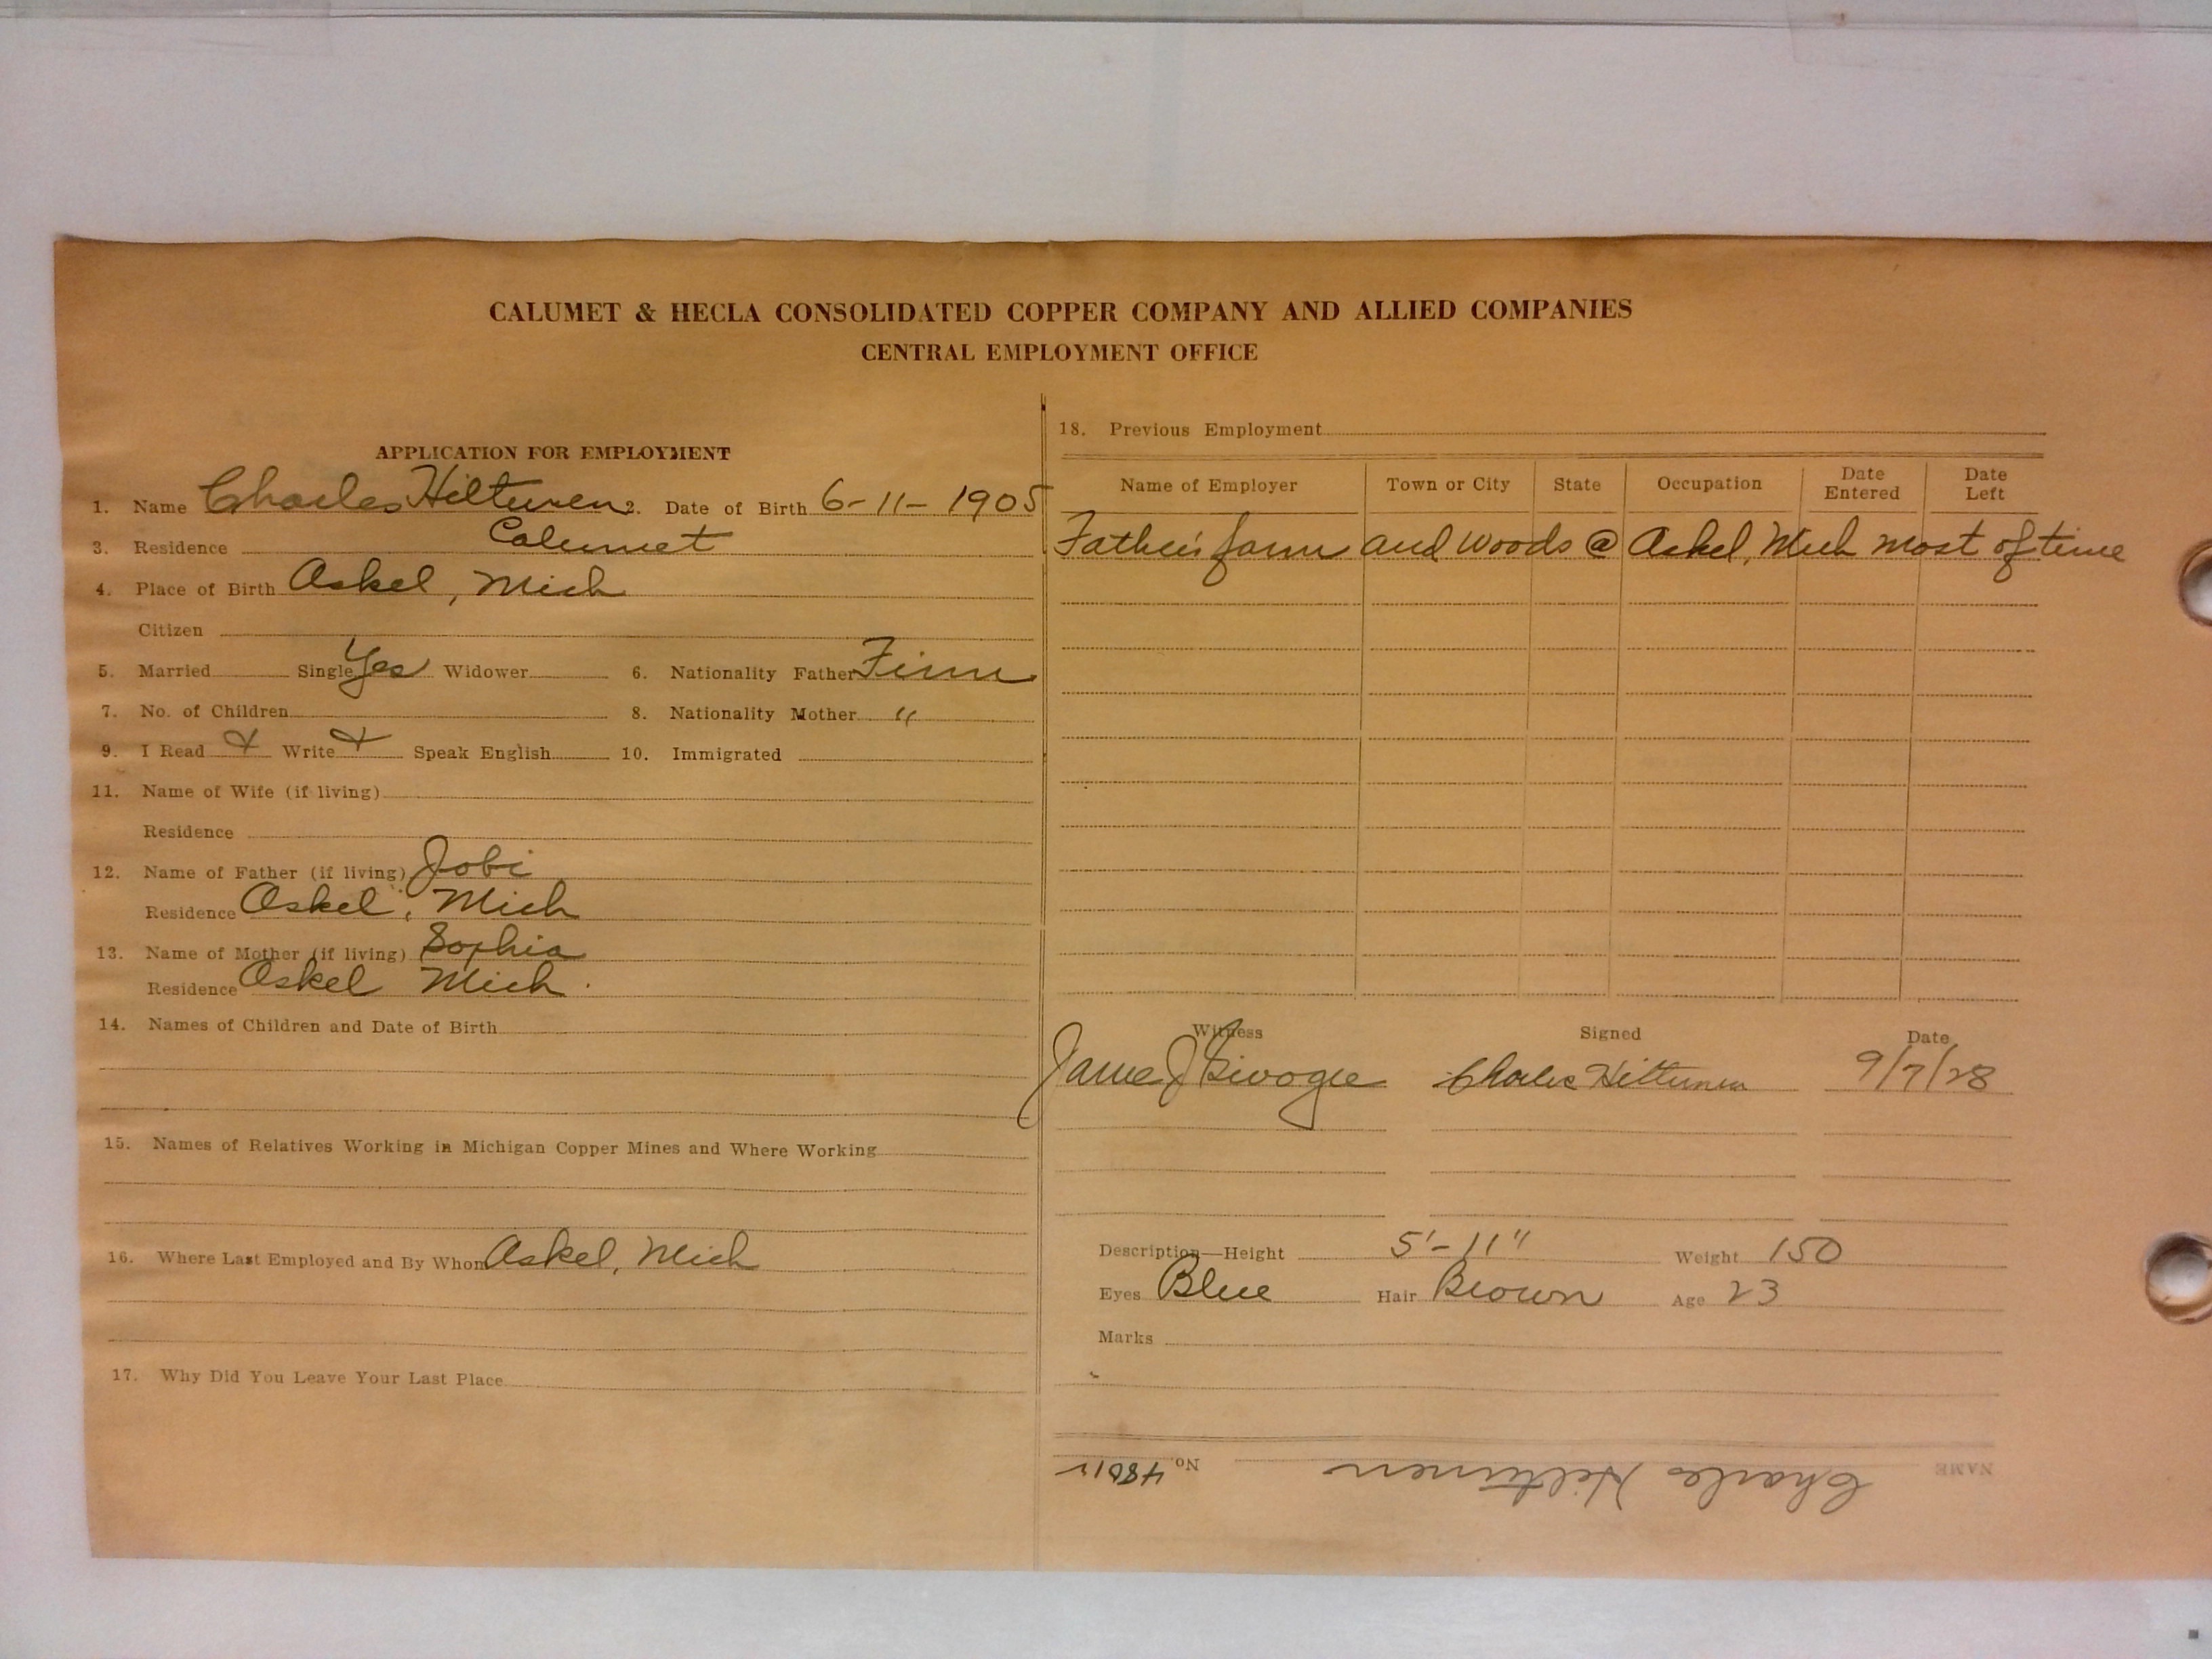 CALUMET & HECLA CONSOLIDATED COPPER COMPANY AND ALLIED COMPANIES
CENTRAL EMPLOYMENT OFFICE
APPLICATION FOR EMPLOYMENT
1. Name Charles Hiltunen 2. Date of Birth 6-11-1905
3. Residence Calumet
4. Place of Birth Askel, Mich
Citizen
5. Married Single Yes Widower 6. Nationality Father Finn
7. No. of Children 8. Nationality Mother "
9. I Read Write Speak English 10. Immigrated
11. Name of Wife (if living)
Residence
12. Name of Father (if living) Jobi
Residence Askel, Mich
13. Name of Mother (if living) Sophia
Residence Askel Mich.
14. Names of Children and Date of Birth
15. Names of Relatives Working in Michigan Copper Mines and Where Working
16. Where Last Employed and By Whom Askel, Mich
17. Why Did You Leave Your Last Place
18. Previous Employment
Name of Employer Town or City State Occupation Date Entered Date Left
Father's farm and woods @ Askel, Mich most of time
Witness Signed Date
James J Charles Hiltunen 9/7/28
Description—Height 5'-11" Weight 150
Eyes Blue Hair Brown Age 23
Marks
NAME Charles Hiltunen No. 48012